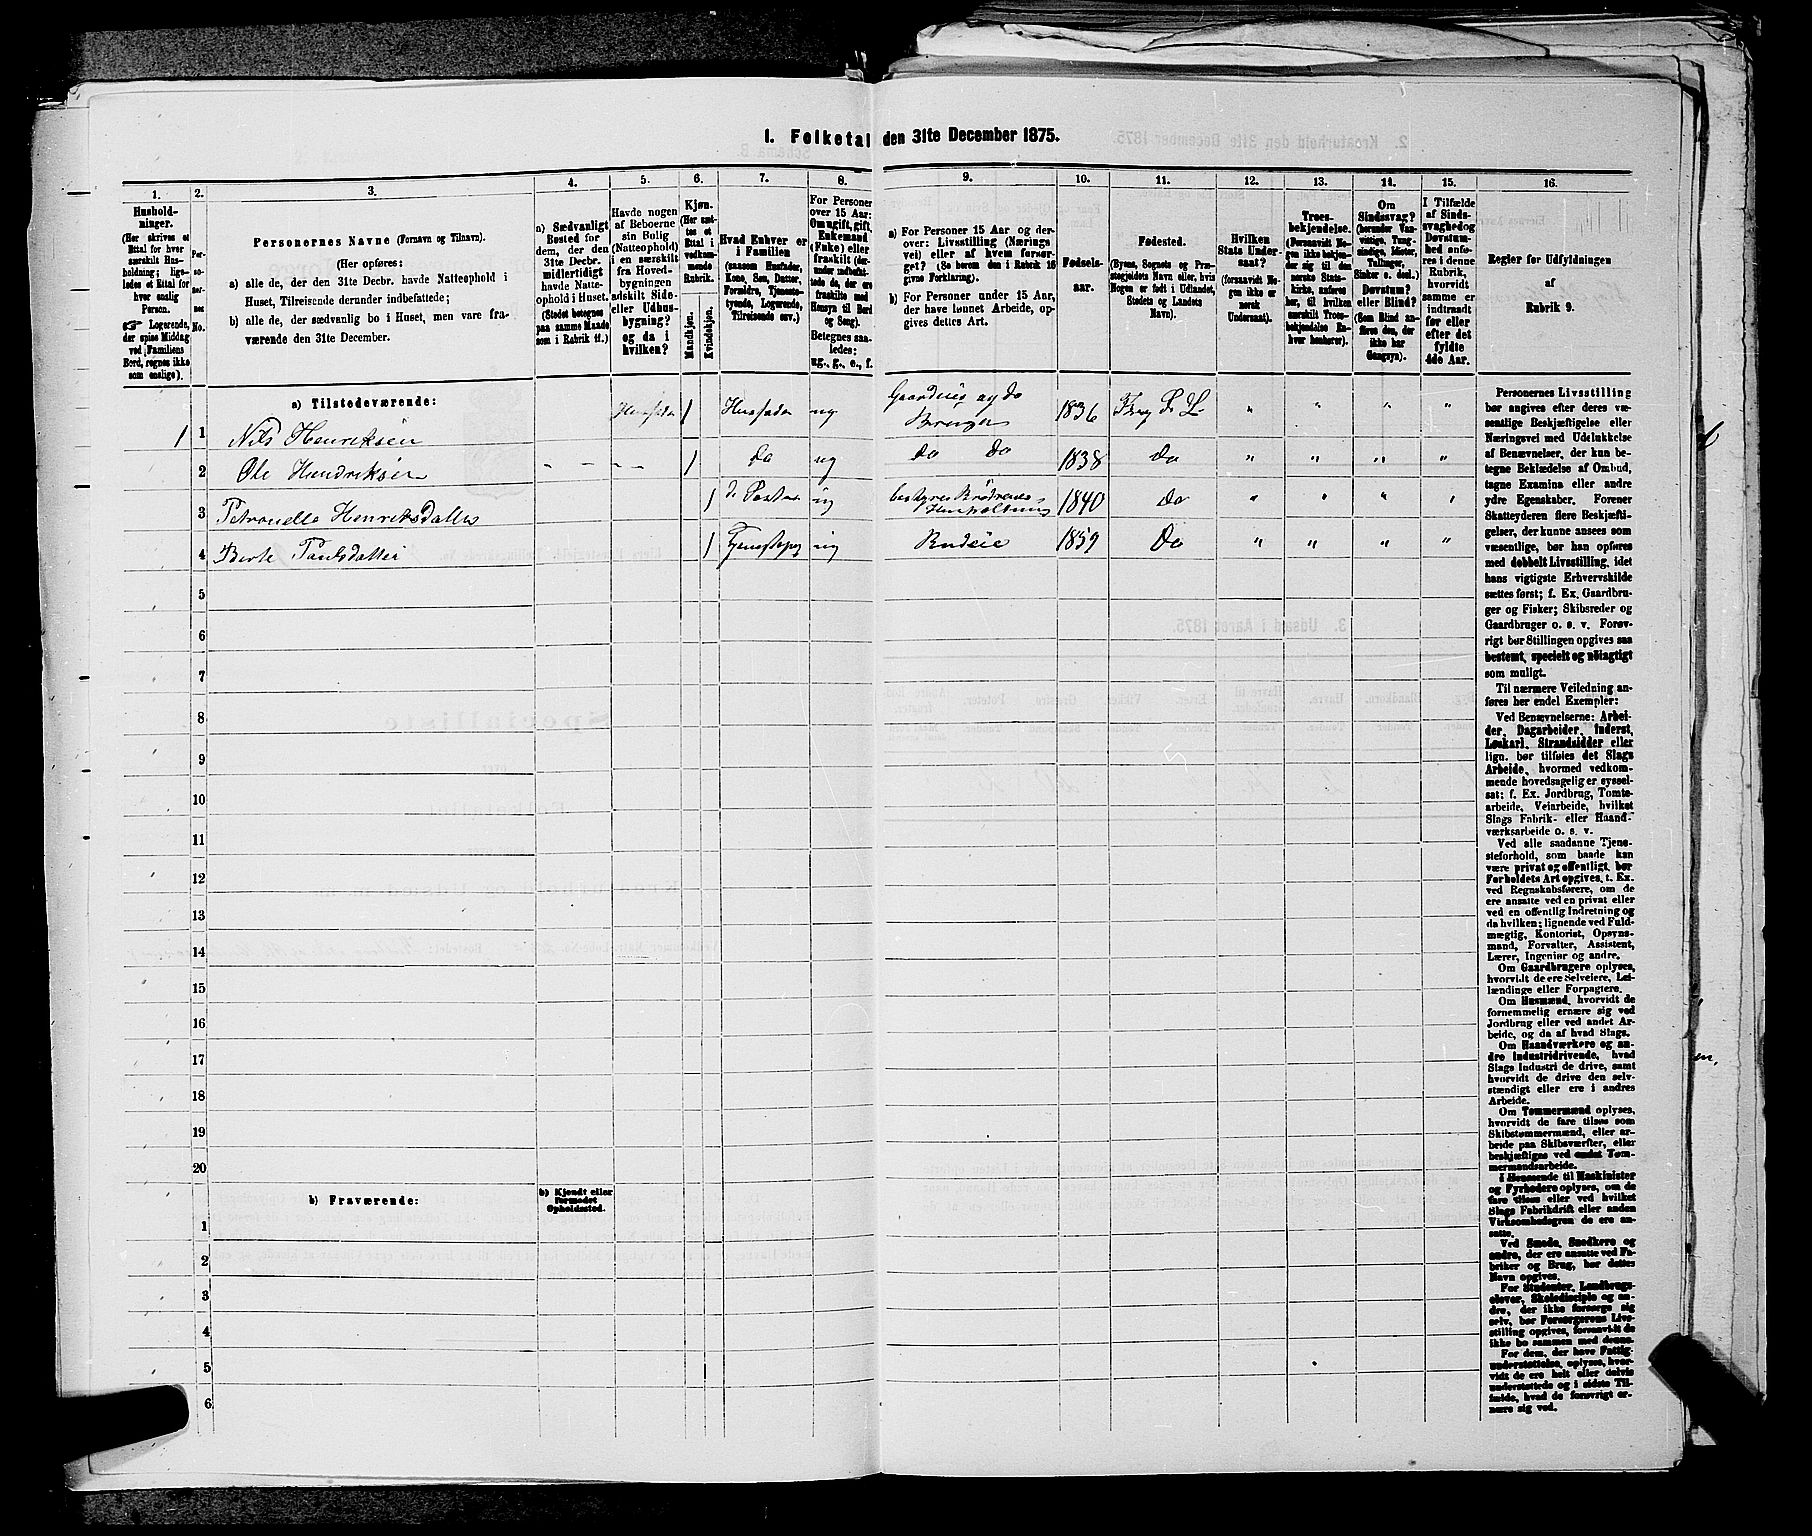 1. Folketal den 31te December 1875.
1. 2. 3. 4. 5. 6. 7. 8. 9. 10. 11. 12. 13. 14. 15. 16.
Hushold-
ninger.
(Her skrives et
Ettal for hver
særskilt Hus-
holdning; lige-
ledes et Ettal for
hver enslig
Person.
Logerende,
der spise Middag
ved Familiens
Bord, regnes ikke
som enslige).
Per-
so-
ner-
nes
No.
Personernes Navne (Fornavn og Tilnavn).
(Her opføres:
a) alle de, der den 31te Decbr. havde Natteophold i
Huset, Tilreisende derunder indbefattede;
b) alle de, der sædvanlig bo i Huset, men vare fra-
værende den 31te December.
a) Sædvanligt
Bosted for
dem, der den
31te Decbr.
midlertidigt
havde Natte-
ophold i Huset.
(Stedet betegnes
paa samme Maade
som i Rubrik 11.)
Havde nogen
af Beboerne
sin Bolig
(Natteophold)
i en særskilt
fra Hoved-
bygningen
adskilt Side-
eller Udhus-
bygning?
og da i
hvilken?
Kjøn.
(Her sæt-
tes et
Ettal i
vedkom-
mende
Rubrik.
Mandkjøn.
Kvindekjøn.
Hvad Enhver er
i Familien
(saasom Husfader,
Kone, Søn, Datter,
Forældre, Tjeneste-
tyende, Logerende,
Tilreisende osv.)
For Personer
over 15 Aar:
Om ugift, gift,
Enkemand
(Enke) eller
fraskilt (der-
under indbefat-
tede de, der ere
fraskilte med
Hensyn til Bord
og Seng).
Betegnes saa-
ledes:
ug., g., e., f.
a) For Personer 15 Aar og der-
over: Livsstilling (Nærings
vei) eller af hvem forsør-
get? (Se herom den i Rubrik 16
givne Forklaring).
b) For Personer under 15 Aar,
der have lønnet Arbeide, op-
gives dettes Art.
Fødsels-
aar.
Fødested.
(Byens, Sognets og Præ-
stegjeldets Navn eller, hvis
Nogen er født i Udlandet,
Stedets og Landets
Navn).
Hvilken
Stats Under-
saat?
(forsaavidt No-
gen ikke er
norsk
Undersaat).
Troes-
bekjendelse.
(Forsaavidt No-
gen ikke bekjen-
der sig til den
norske Stats-
kirke, anføres
her, til hvilken
særskilt Troes-
bekjendelse En-
hver henhører).
Om
Sindssvag?
(herunder Van-
vittige, Tung-
sindige, Idioter,
Tullinger,
Sinker o. desl.)
Døvstum?
eller Blind?
(Som Blind an-
føres den, der
ikke har
Gangsyn).
I Tilfælde
af Sinds-
svaghed og
Døvstum-
hed anfø-
res i denne
Rubrik,
hvorvidt
samme er
indtraadt
før eller
efter det
fyldte
4de Aar.
Regler for Udfyldningen
af
Rubrik 9.
a) Tilstedeværende:
1 1 Nils Henriksen 1 Husfader ug Gaardeier og do Bruger 1836 " " " "
2 Ole Hendriksen - - - - 1 do ug do do 1838 do " " " "
3 Petronelle Henriksdatter 1 ug bestyrer Brødrenes 1840 do " " " "
4 Berte Paulsdatter 1 ug Budeie 1859 Do " " " "
5
6
7
8
9
10
11
12
13
14
15
16
17
18
19
20
b) Fraværende:
b) Kjendt eller
formodet
Opholdssted.
1
2
3
4
5
6
Personernes Livsstilling
bør angives efter deres væ-
sentlige Beskjæftigelse eller
Næringsvei med Udelukkelse
af Benævnelser, der kun be-
tegne Beklædelse af Ombud,
tagne Examina eller andre
ydre Egenskaber. Forener
Skatteyderen flere Beskjæfti-
gelser, der kunne ansees som
væsentlige, bør han opføres
med dobbelt Livsstilling, idet
hans vigtigste Erhvervskilde
sættes først; f. Ex. Gaardbru-
ger og Fisker; Skibsreder og
Gaardbruger o. s. v. Forøv-
rigt bør Stillingen opgives saa
bestemt, specielt og nøiagtigt
som muligt.
Til nærmere Veiledning an-
føres her endel Exempler:
Ved Benævnelserne: Arbei-
der, Dagarbeider, Inderst,
Løskarl, Strandsidder eller
lign. bør tilføies det Slags
Arbeide, hvormed vedkom-
mende hovedsagelig er syssel-
sat; f. Ex. Jordbrug, Tomte-
arbeide, Veiarbeide, hvilket
Slags Fabrik- eller Haand-
værksarbeide o. s. v.
Ved alle saadanne Tjene-
steforhold, som baade kan
være privat og offentligt, bør
Forholdets Art opgives, t. Ex.
ved Regnskabsførere, om de
ere ansatte ved en privat eller
ved en offentlig Indretning og
da hvilken; lignende ved Fuld-
mægtig, Kontorist, Opsyns-
mand, Forvalter, Assistent,
Lærer, Ingeniør og andre.
Om Gaardbrugere oplyses,
hvorvidt de ere Selveiere, Lei-
lændinge eller Forpagtere.
Om Husmænd, hvorvidt de
fornemmelig ernære sig ved
Jordbrug eller ved andet Ar-
beide, og da af hvad Slags.
Om Haandværkere og an-
dre Industridrivende, hvad
Slags Industri de drive, samt
hvorvidt de drive den selv-
stændigt eller ere i andres
Arbeide.
Om Tømmermænd oplyses,
hvorvidt de fare tilsøs som
Skibstømmermænd, eller ar-
beide paa Skibsværfter, eller
beskjæftiges ved andet Tøm-
mermandsarbeide.
I Henseende til Maskinister
og Fyrbødere oplyses, om de
fare tilsøs eller ved hvilket
Slags Fabrikdrift eller anden
Virksomhedsgren de ere an-
satte.
Ved Smede, Snedkere og
andre, der ere ansatte ved Fa-
briker og Brug, bør dettes
Navn opgives.
For Studenter, Landbrugs-
elever, Skoledisciple og an-
dre, der ikke forsørge sig
selv, bør Forsørgerens Livs-
stilling opgives, forsaavidt de
ikke bo sammen med denne.
For dem, der have Fattig-
understøttelse, oplyses, hvor-
vidt de ere helt eller delvis
understøttede og i sidste Til-
fælde, hvad de forøvrigt er-
nære sig ved.